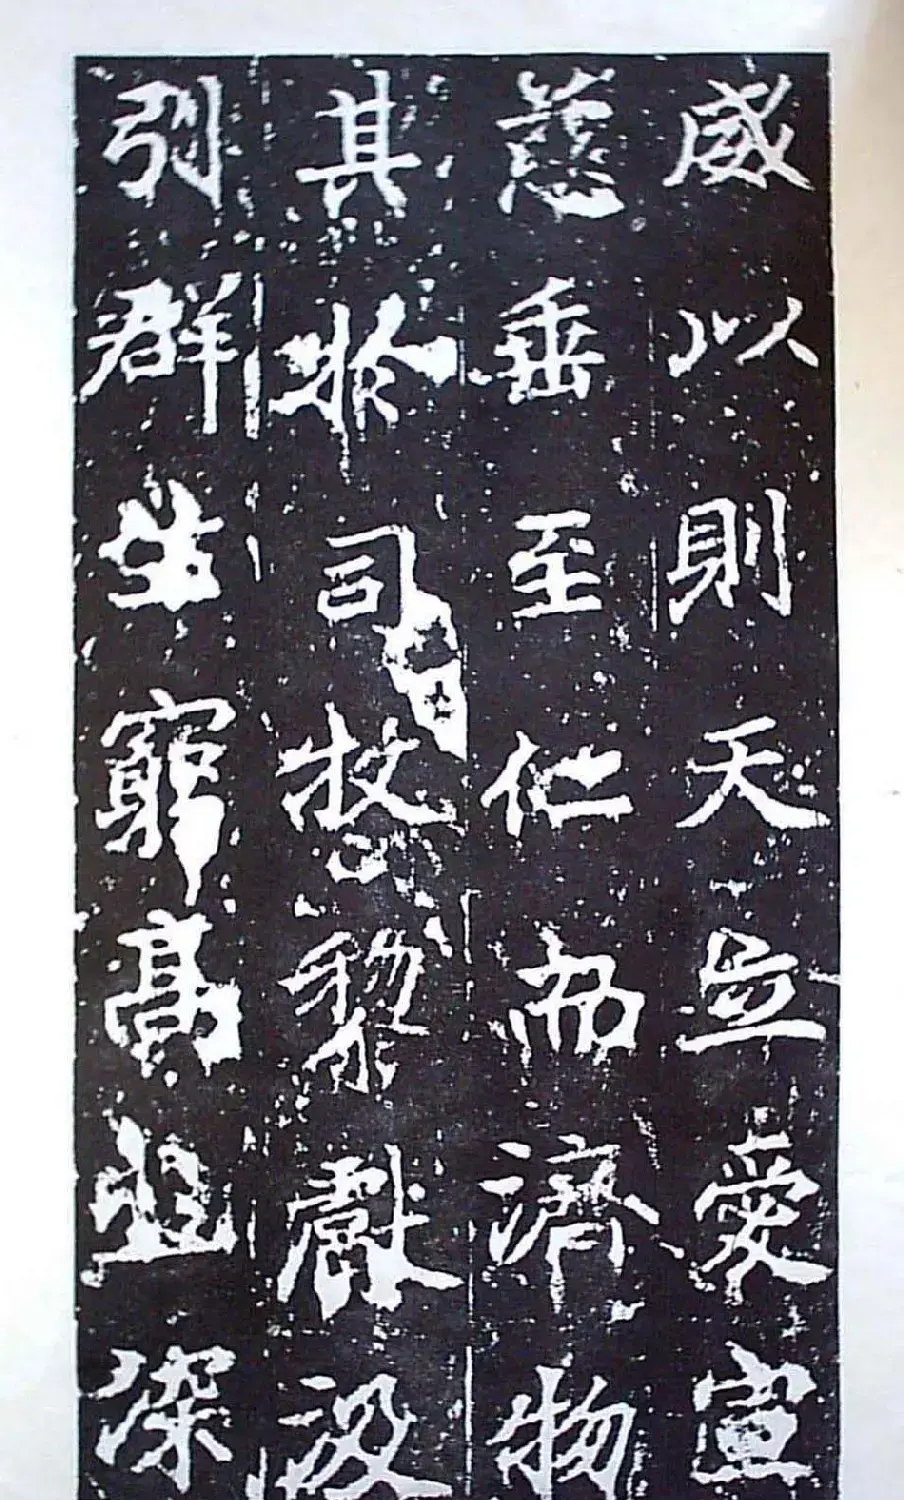 威以則天立愛宣
慈垂至仁而濟物
其於司牧黎獻汲
引群生窮高並深